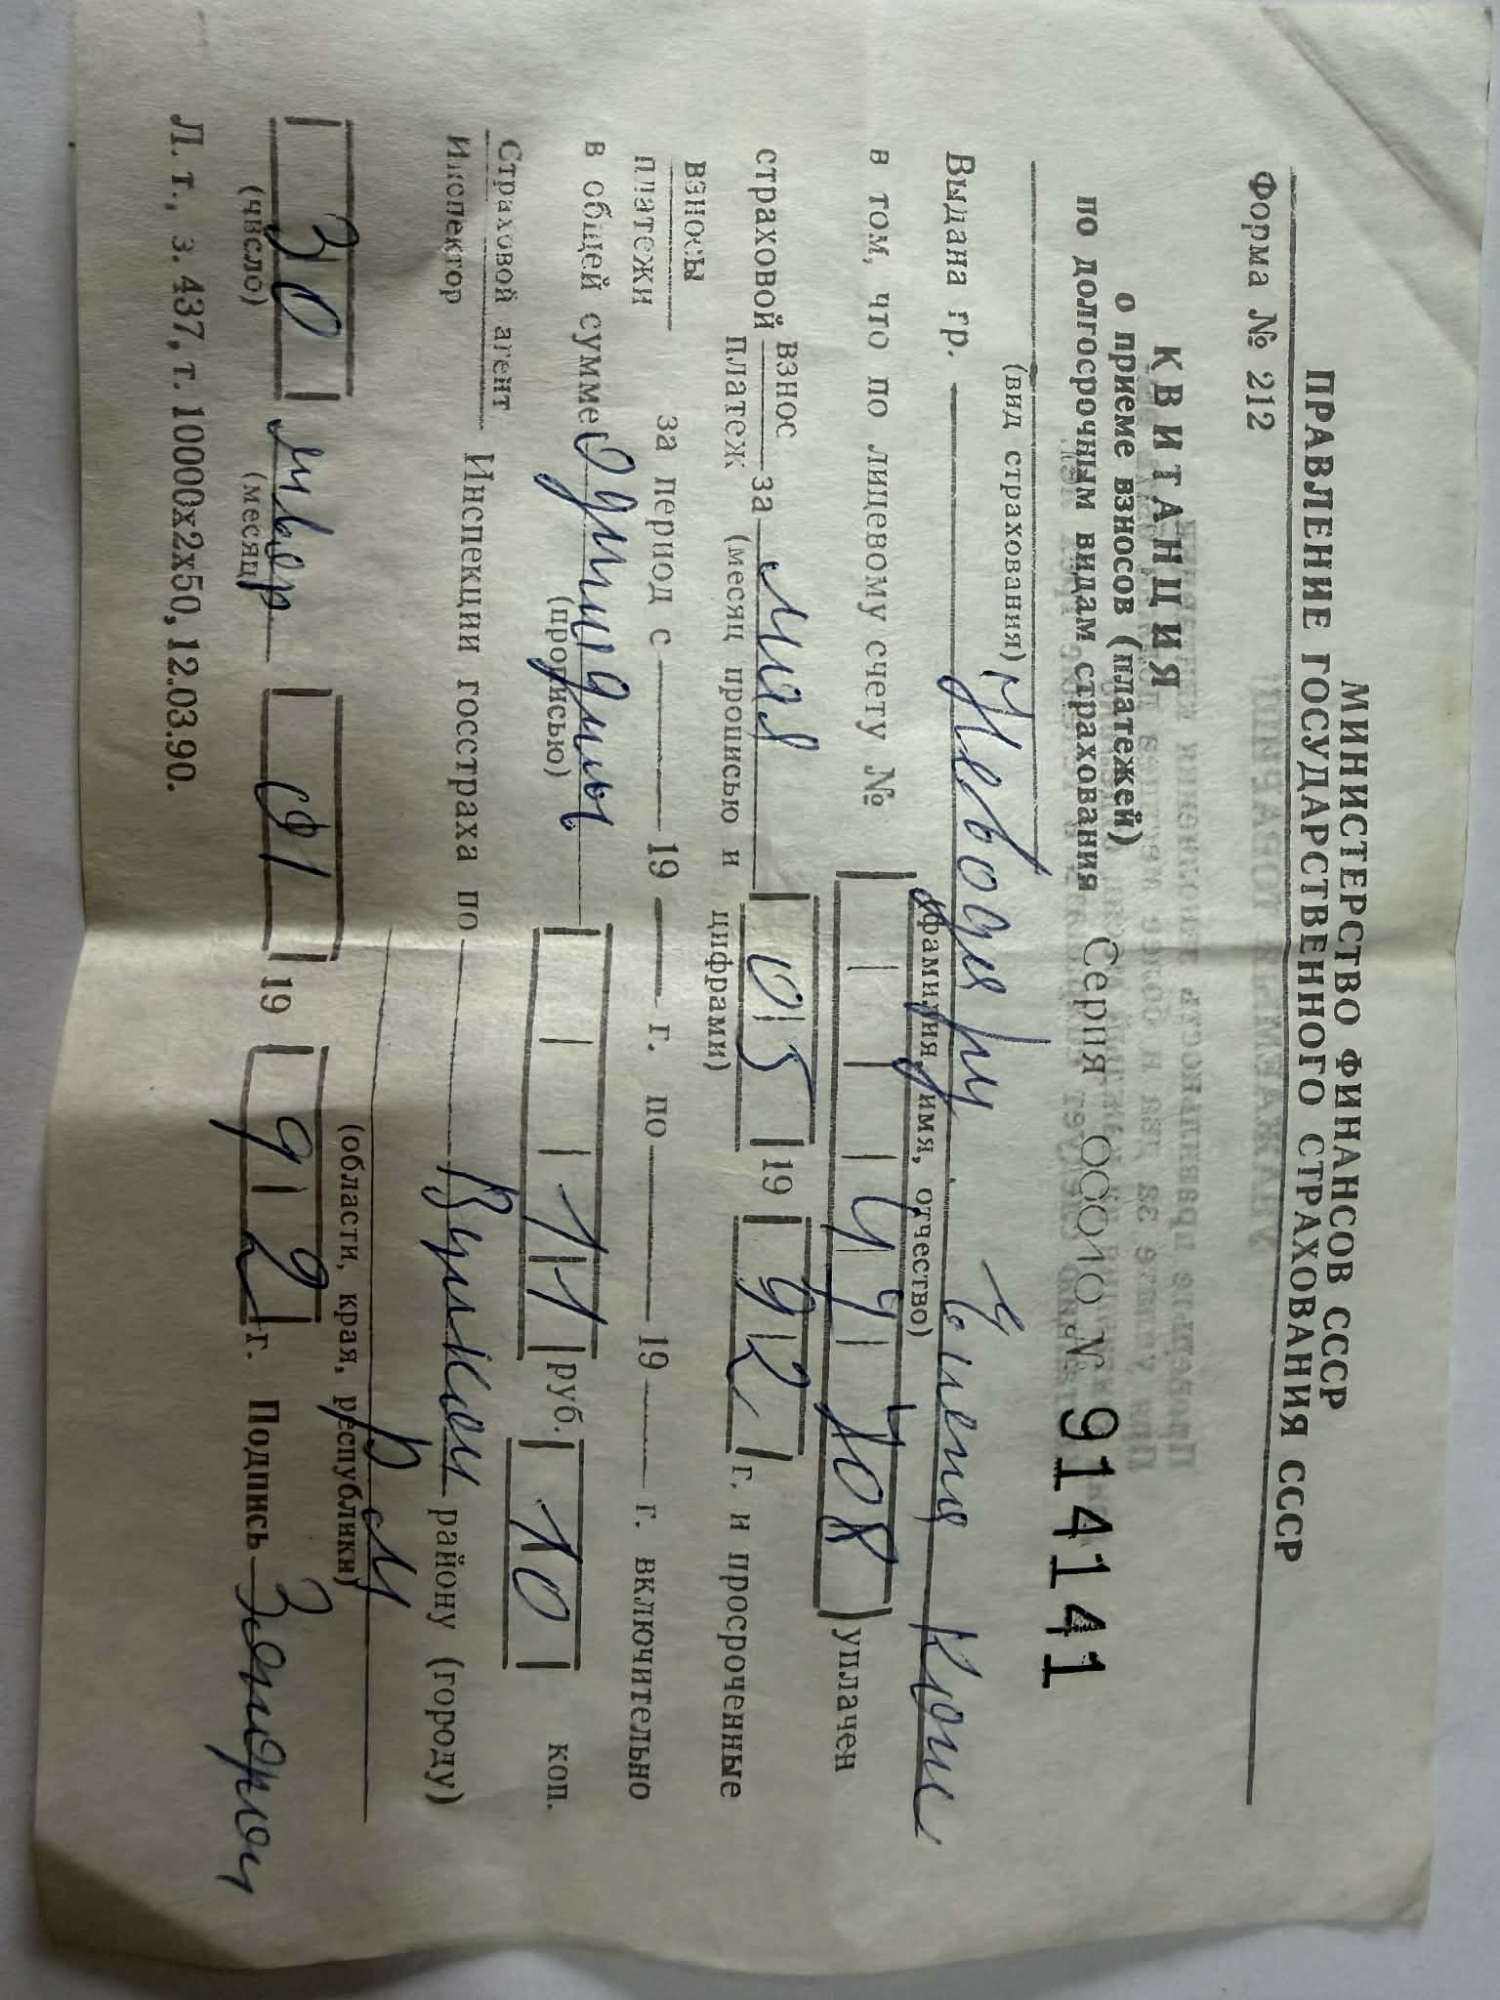 МИНИСТЕРСТВО ФИНАНСОВ СССР
ПРАВЛЕНИЕ ГОСУДАРСТВЕННОГО СТРАХОВАНИЯ СССР
Форма № 212
КВИТАНЦИЯ
о приеме взносов (платежей)
по долгосрочным видам страхования Серия 00010 № 914141
(вид страхования)
Выдана гр.
(фамилия, имя, отчество)
в том, что по лицевому счету № 4408 уплачен
страховой взнос платеж за мая 05 1992 г. и просроченные
(месяц прописью и цифрами)
взносы платежи за период с 19 г. по 19 г. включительно
в общей сумме 11 руб. 10 коп.
(прописью)
Страховой агент Инспектор Инспекции госстраха по району (городу)
РМ
(области, края, республики)
30 01 1992 г. Подпись
(число) (месяц)
Л. т., з. 437, т. 10000х2х50, 12.03.90.